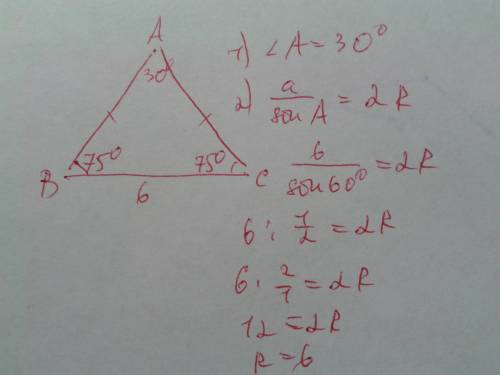 A
30°
B
75°
75°
C
6
1) ∠A = 30°
2) a/sin A = 2R
6/sin 60° = 2R
6 : 1/2 = 2R
6 · 2/1 = 2R
12 = 2R
R = 6